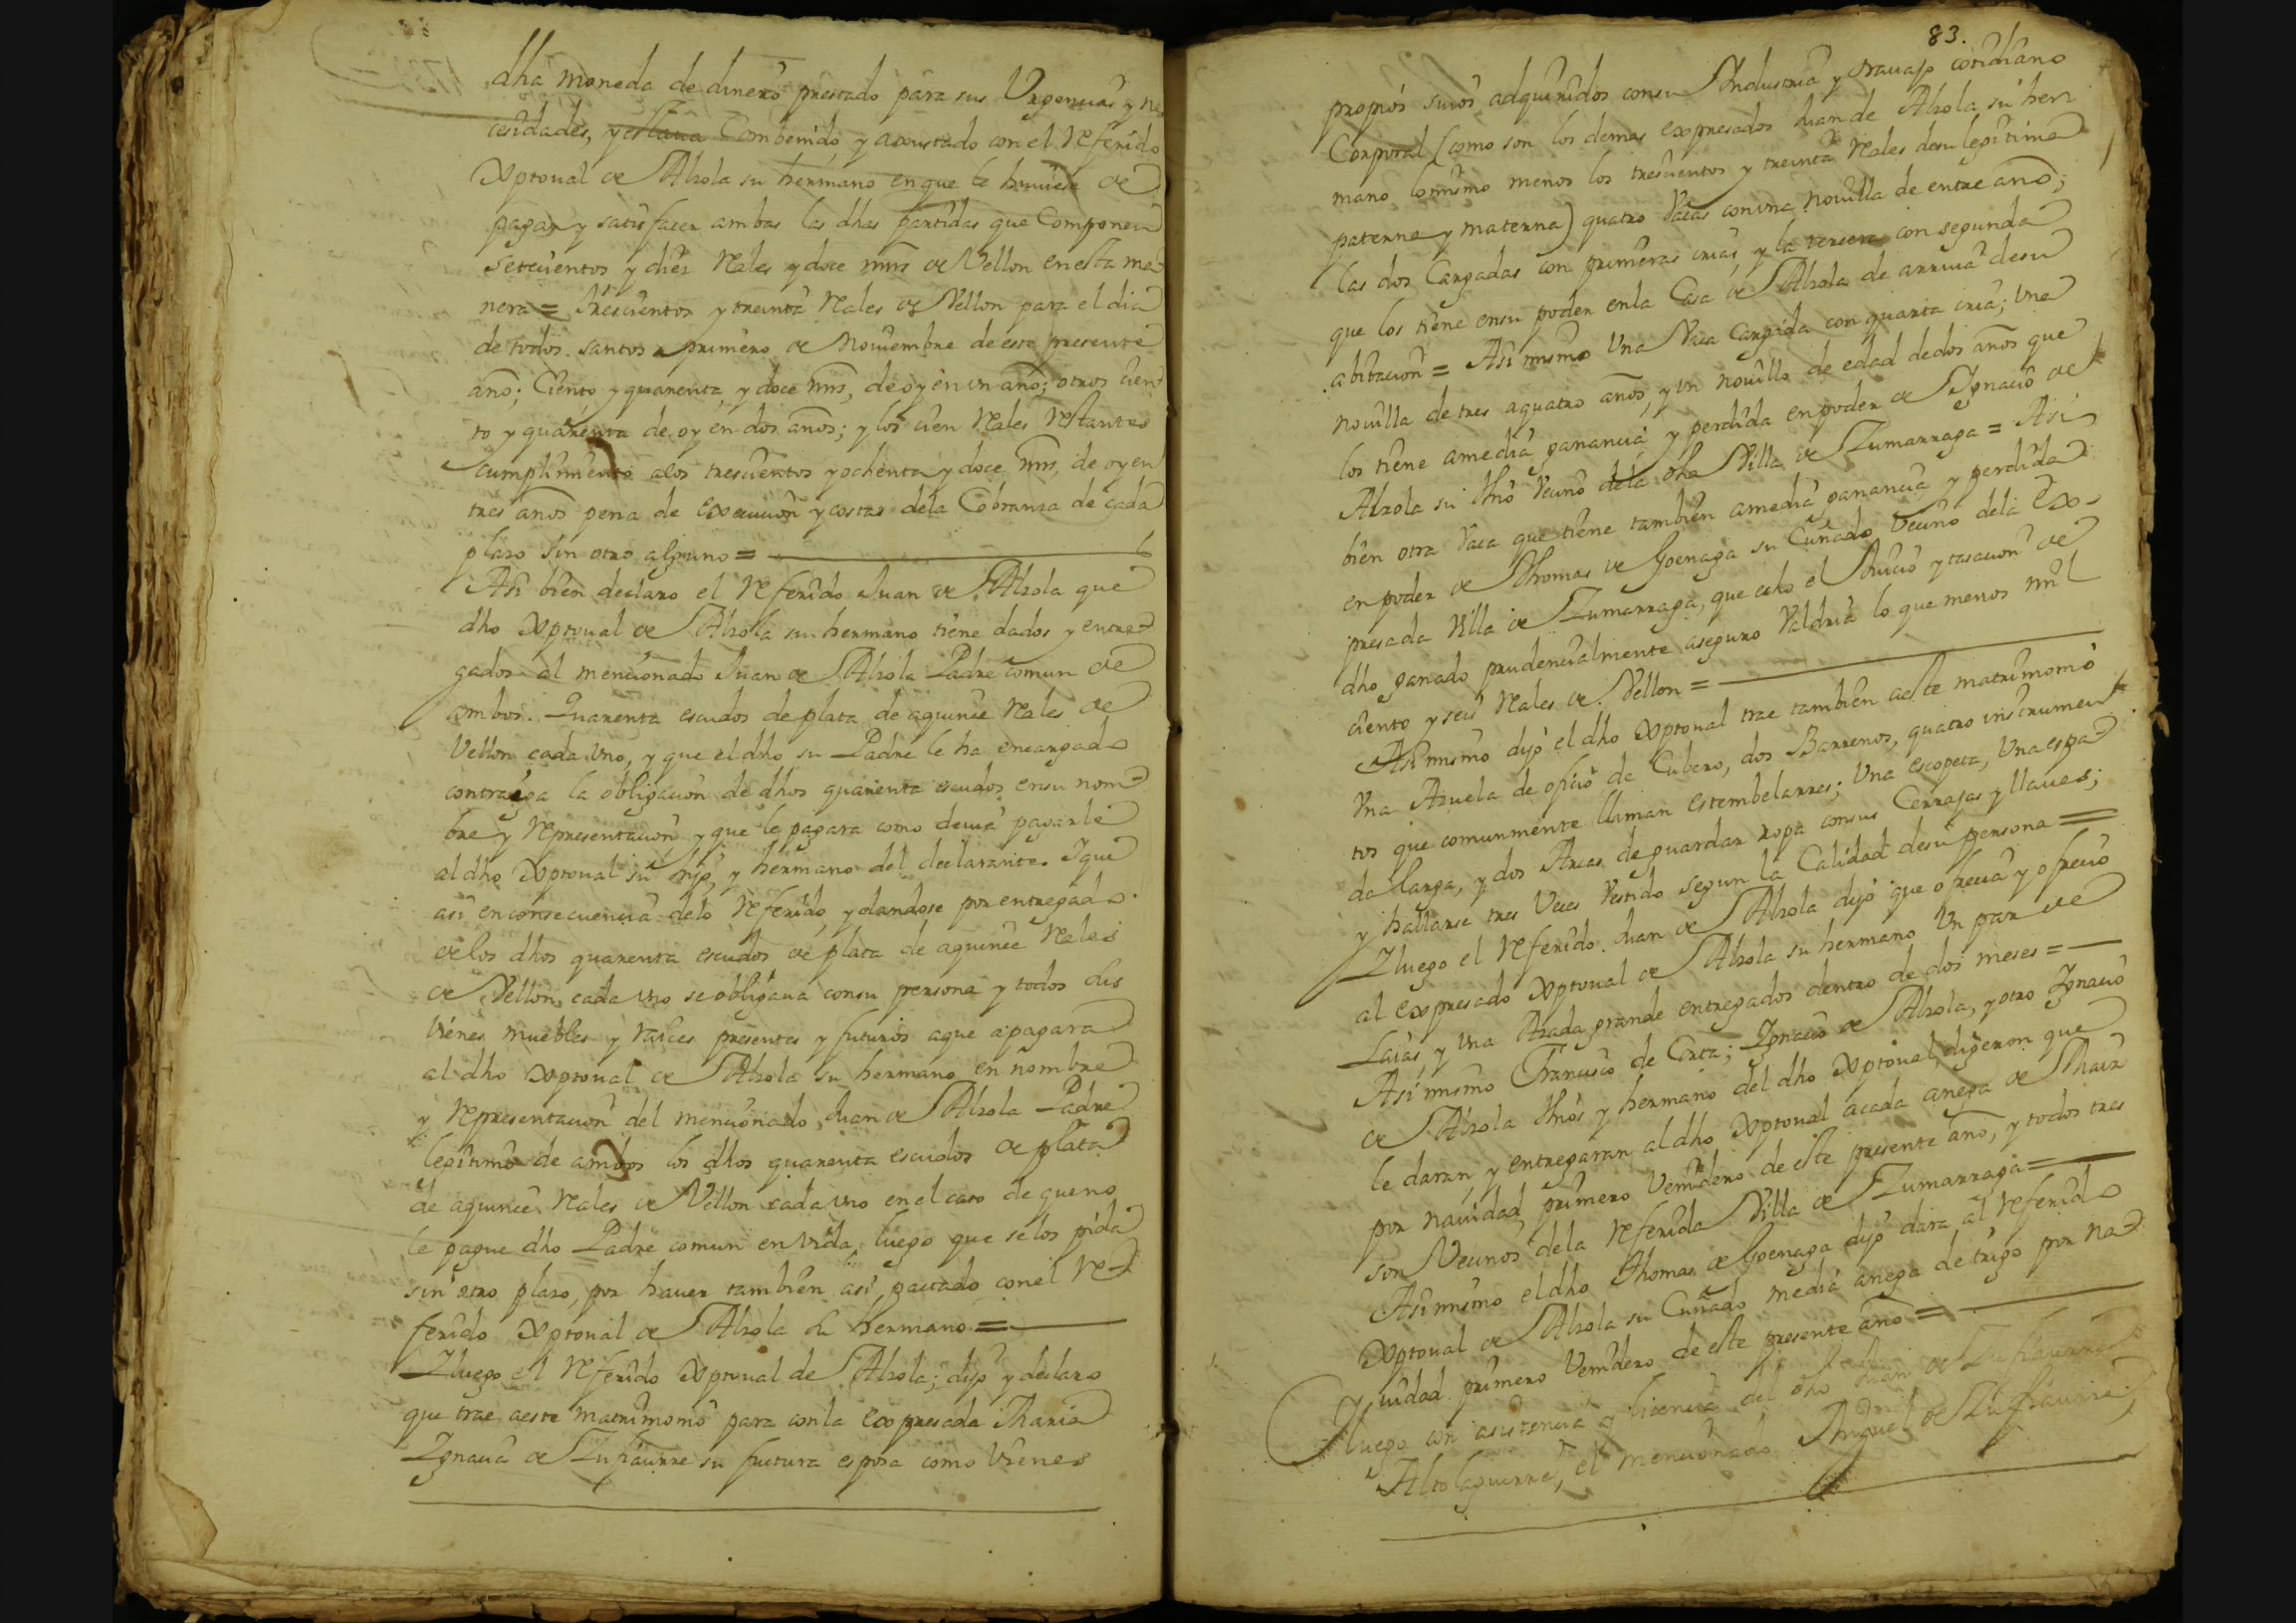 dha moneda de dinero prestado para sus Urgencias y ne
cesidades, y estaua Combenido y axustado con el referido
Xptoual de Alzola su hermano en que le huuiese de
pagar y satisfacer ambas las dhas partidas que Componen
Setecientos y diez Reales y doce mrs de Vellon en esta ma
nera = Trescientos y treinta Reales de Vellon para el dia
de todos santos primero de Nouiembre de este presente
año; Ciento y quarenta, y doce mrs, de oy en un año; otros cien
to y quarenta de oy en dos años; y los cien Reales restantes
cumplimiento a los trescientos y ochenta y doce mrs, de oy en
tres años pena de execucion y costas dela Cobranza de cada
plazo sin otro alguno =
Asi bien declaro el referido Juan de Alzola que
dho Xptoual de Alzola su hermano tiene dados y entre
gados al mencionado Juan de Alzola Padre comun de
ambos. Quarenta escudos de plata de aquince Reales de
Vellon cada uno, y que el dho su Padre le ha encargado
contraiga la obligacion de dhos quarenta escudos en su nom
bre y representacion y que le pagara como deuia pagarle
al dho Xptoual su hijo, y hermano del declarante. Y que
asi en consecuencia delo referido, y dandose por entregado
de los dhos quarenta escudos de plata de aquince Reales
de Vellon cada uno se obligaua con su persona y todos sus
vienes muebles y raices presentes y futuros a que apagara
al dho Xptoual de Alzola su hermano en nombre
y representacion del mencionado Juan de Alzola Padre
legitimo de ambos los dhos quarenta escudos de plata
de aquince Reales de Vellon cada uno en el caso de que no
le pague dho Padre comun en vida, luego que se los pida
sin otro plazo, por hauer tambien asi pactado con el re
ferido Xptoual de Alzola su hermano =
Y luego el referido Xptoual de Alzola; dijo y declaro
que trae a este matrimonio para con la expresada Maria
Ygnacia de Lufiaurre su futura esposa como vienes
83.
propios suios adquiridos con su Industria y trauajo cotidiano
Corporal (como son los demas expresados Juan de Alzola su her
mano lo mismo menos los trescientos y treinta Reales de su legitima
paterna y materna) quatro Vacas con una nouilla de entre año;
las dos Cargadas con primeras crias, y la tercera con segunda
que los tiene en su poder en la Casa de Alzola de arriua de su
abitacion = Asi mismo Una Vaca Cargada con quarta cria; Una
nouilla de tres a quatro años, y un nouillo de edad de dos años que
los tiene amedia ganancia y perdida en poder de Ygnacio de
Alzola su Hno Vecino dela dha Villa de Zumarraga = Asi
bien otra Vaca que tiene tambien amedia ganancia y perdida
en poder de Thomas de Goenaga su Cuñado Vecino dela Ex
presada Villa de Zumarraga, que echo el Juicio y tasacion de
dho ganado prudencialmente aseguro Valdria lo que menos mil
ciento y seis Reales de Vellon =
Asi mismo dijo el dho Xptoual trae tambien aeste matrimonio
Una Azuela de oficio de Cubero, dos Barrenos, quatro instrumen
tos que comunmente llaman estembelarres; Una escopeta, Una espa
da larga, y dos Arcas de guardar ropa con sus Cerrajas y llaues;
y hallarse tres Veces Vestido segun la Calidad de su persona =
Y luego el referido Juan de Alzola dijo que ofrecia y ofrecio
al expresado Xptoual de Alzola su hermano Un par de
Laias, y Una Azada grande entregados dentro de dos meses =
Asi mismo Francisco de Orta; Ygnacio de Alzola, y otro Ygnacio
de Alzola Hnos y hermano del dho Xptoual, dijeron que
le daran y entregaran al dho Xptoual acada anega de Maiz
por nauidad primero Venidero de este presente año, y todos tres
son Vecinos dela referida Villa de Zumarraga =
Asi mismo el dho Thomas de Goenaga dijo dara al referido
Xptoual de Alzola su Cuñado media anega de trigo por na
uidad primero Venidero de este presente año =
Y luego con asistencia y licencia del dho Juan de Lufiaurre
Altolaguirre, el mencionado Miguel de Lufiaurre;